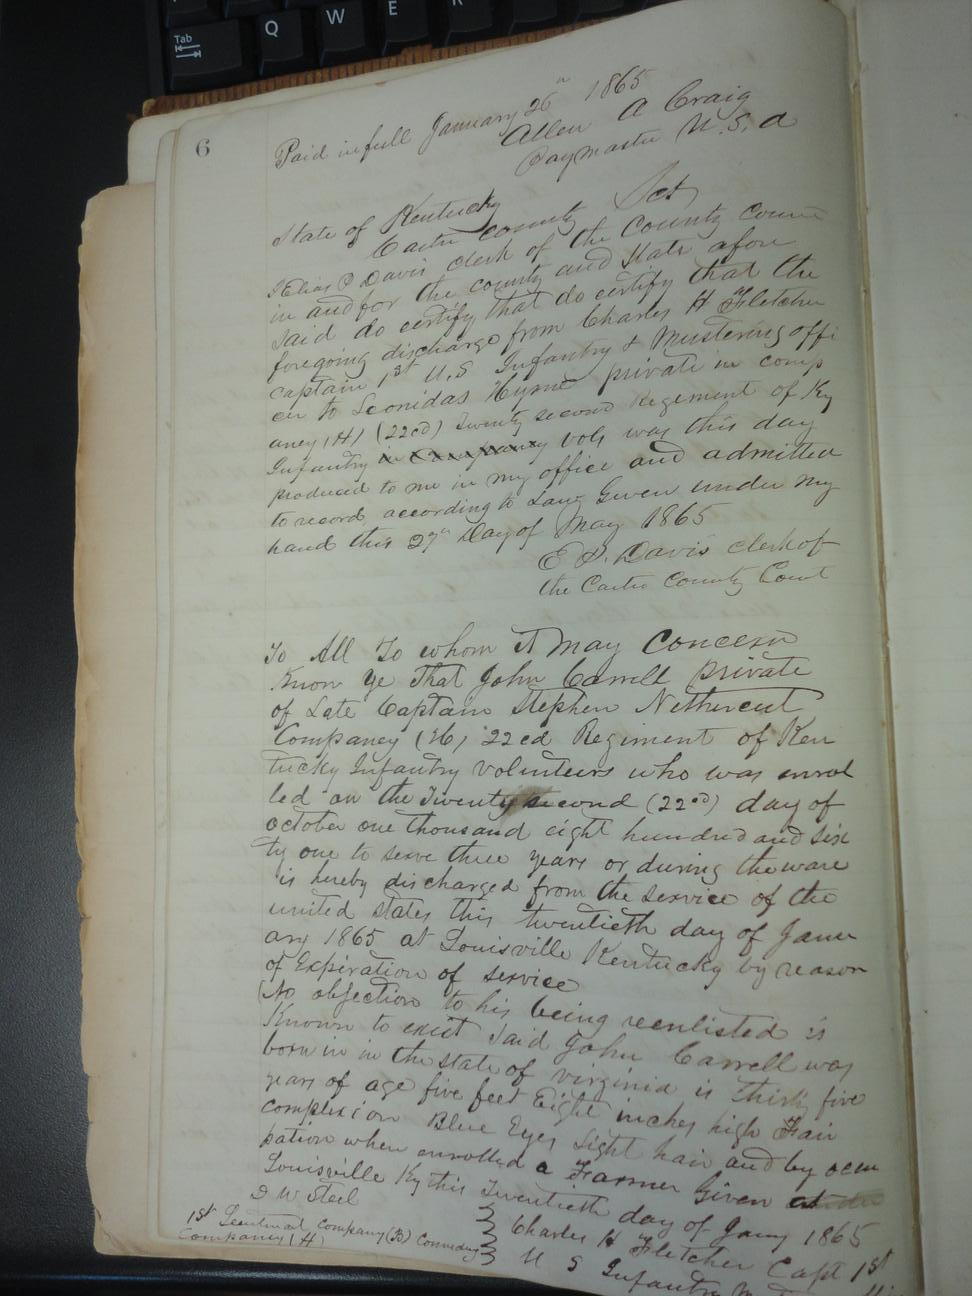 Tab
Q
W
E
R
6
Paid in full January 26th 1865
Allen A Craig
Paymaster U. S. A
State of Kentucky
Carter County Sct
I Elias P Davis clerk of the County Court
in and for the county and State afore
said do certify that do certify that the
foregoing discharge from Charles H Fletcher
captain 1st U.S Infantry & Mustering offi
cer to Leonidas Hyme private in comp
aney (H) (22cd) Twenty second Regement of Ky
Infantry in Company vols was this day
produced to me in my office and admitted
to record according to Law Given under my
hand this 27th Day of May 1865
E P. Davis clerk of
the Carter County Court
To All To whom it may Concern
Know ye That John Carrell private
of Late Captain Stephen Nethercut
Companey (H) 22cd Regiment of Ken
tucky Infantry volunteers who was enrol
led on the Twenty second (22nd) day of
October one thousand eight hundred and six
ty one to serve three years or during the ware
is hereby discharged from the service of the
united states this twentieth day of Janu
ary 1865 at Louisville Kentucky by reason
of Expiration of service
(No objection to his being reenlisted is
Known to exist Said John Carrell was
born in in the state of virginia is Thirty five
years of age five feet Eight inches high Fair
complexion Blue Eyes Light hair and by occu
pation when enrolled a Farmer Given at
Louisville Ky this Twentieth day of Jany 1865
D W Steel
1st Leutenat Company (B) Commding
Company (H)
Charles H Fletcher Capt 1st
U S Infantry